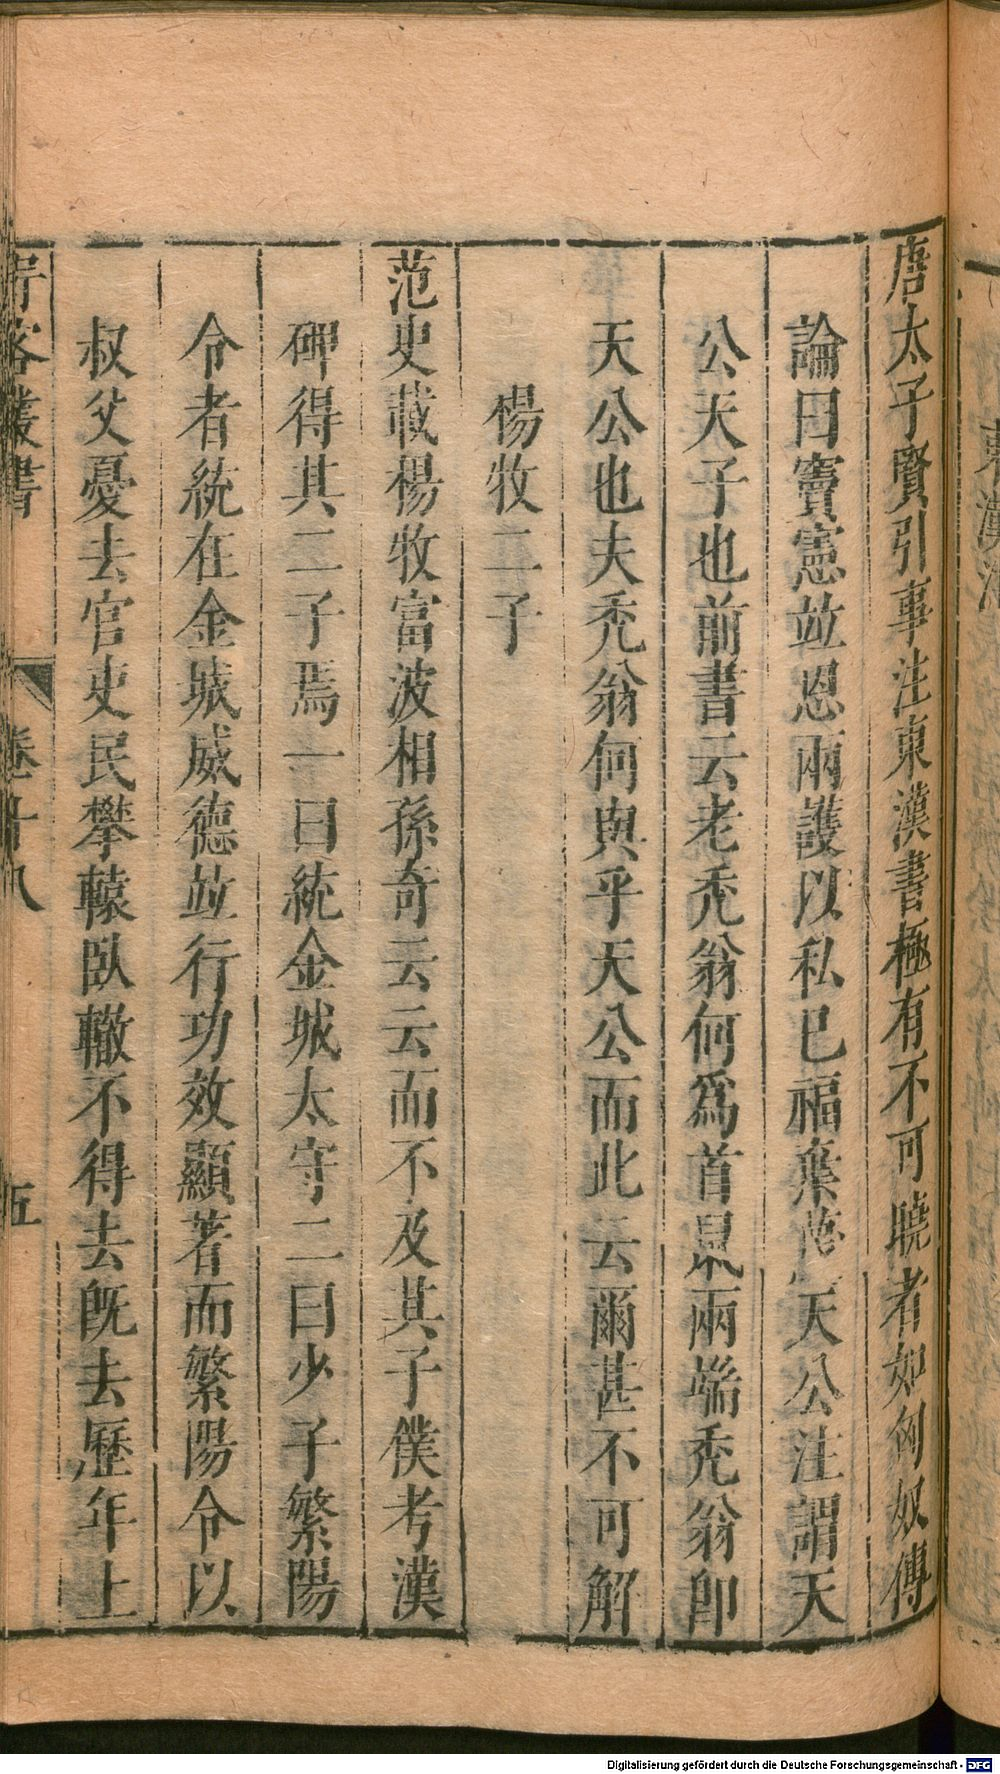 唐太子賢引事注東漢書極有不可曉者如匈奴傳
論曰竇憲並恩兩護以私已福棄蔑天公注謂天
公天子也前書云老禿翁何爲首鼠兩端禿翁卽
天公也夫禿翁何與乎天公而此云爾甚不可解
楊牧二子
范史載楊牧富波相孫奇云云而不及其子僕考漢
碑得其二子焉一曰統金城太守二曰少子繁陽
令者統在金城威德並行功效顯著而繁陽令以
叔父憂去官吏民攀轅臥轍不得去旣去歷年上
客叢書
卷十八
五
Digitalisierung gefördert durch die Deutsche Forschungsgemeinschaft - DFG